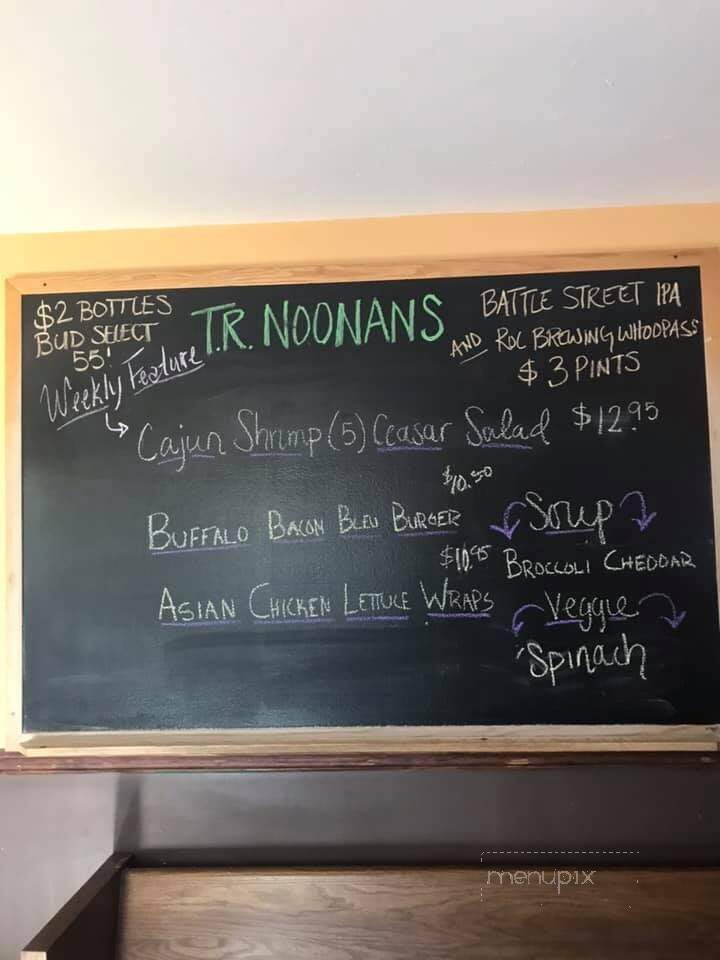 $2 BOTTLES
BUD SELECT
55!
T.R. NOONANS
BATTLE STREET IPA
AND ROC BREWING WHOOPASS
$3 PINTS
Weekly Feature
Cajun Shrimp (5) Ceasar Salad $12.95
$10.50
BUFFALO BACON BLEU BURGER
$10.95
ASIAN CHICKEN LETTUCE WRAPS
Soup
BROCCOLI CHEDDAR
Veggie
Spinach
menupix